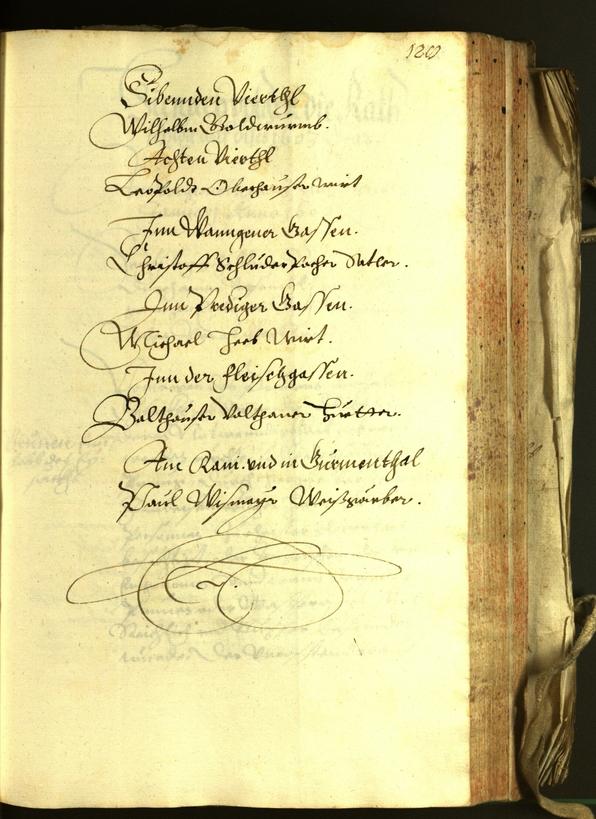 129
Sibennden Vierthl
Wilhalbm Goldwurmb.
Achten Vierthl
Leopoldt Oberhauser wirt
Inn Wanngener Gassen.
Christoff Schluder Pacher Satler.
Inn Prediger Gassen.
Michael Heeb Wirt.
Inn der fleischgassen.
Balthauser Valthaner
Am Rain. vnd in Gurmenthal
Paul Wismayr Weißgärber.